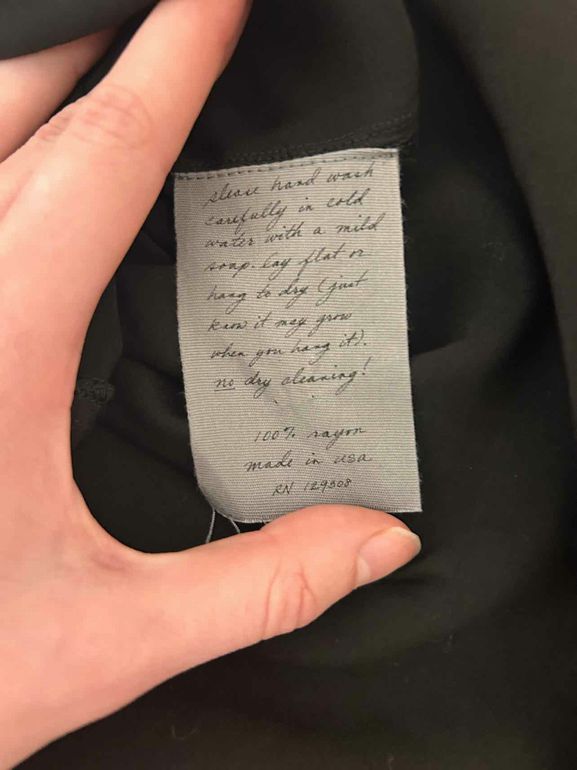 please hand wash
carefully in cold
water with a mild
soap. lay flat or
hang to dry (just
know it may grow
when you hang it).
no dry cleaning!
100% rayon
made in usa
RN 129508